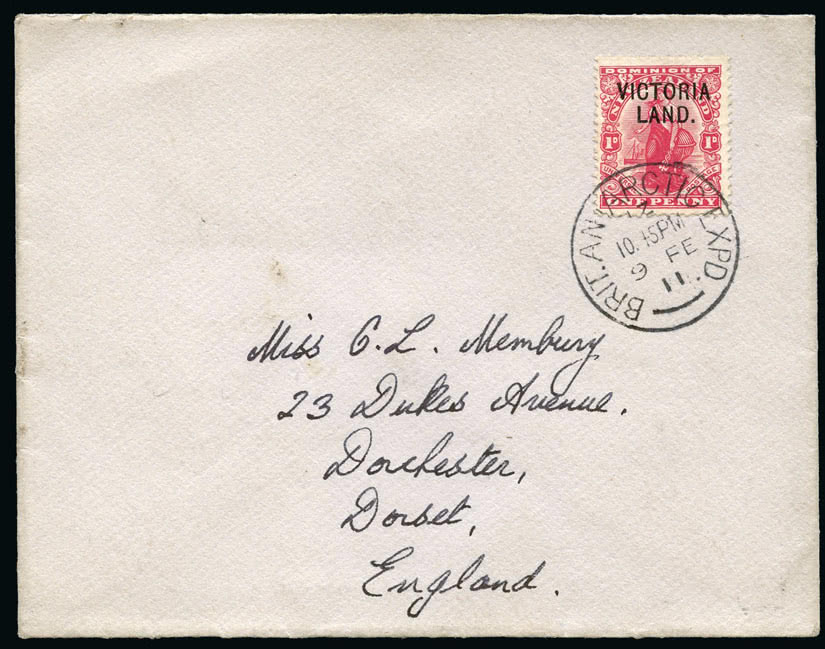 DOMINION OF
NEW ZEALAND
VICTORIA
LAND.
1D 1D
ONE PENNY
BRIT. ANTARCTIC EXPD.
10.45PM
9 FE
11
Miss G. L. Membury
23 Dukes Avenue.
Dorchester,
Dorset,
England.